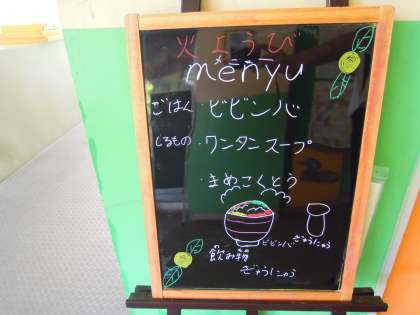 火ようび
menyu
ごはん・ビビンバ
しるもの・ワンタンスープ
・まめこくとう
ビビンバ
ぎゅうにゅう
飲み物
ぎゅうにゅう